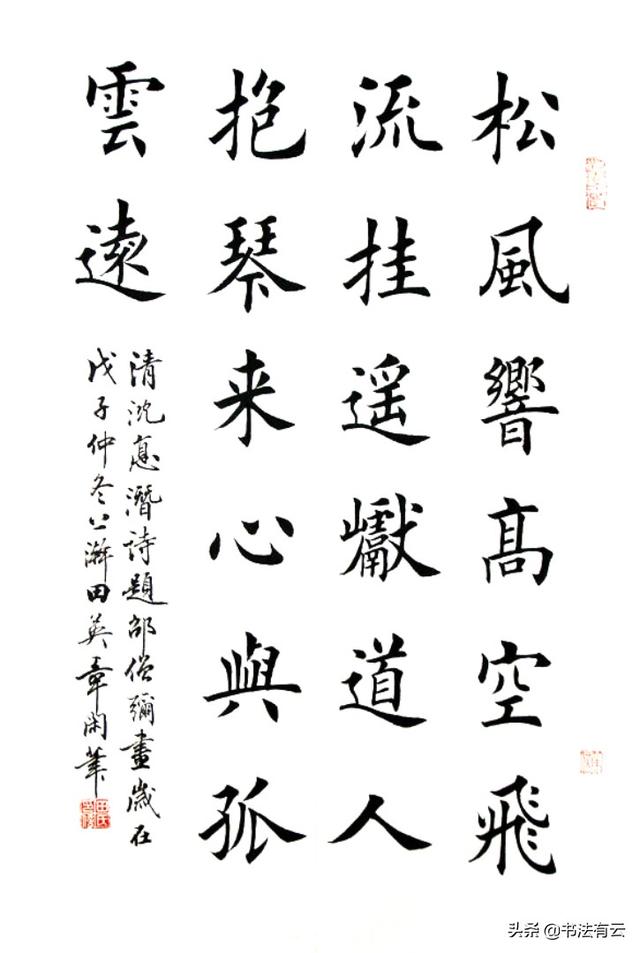 松風響髙空飛
流挂遥巘道人
抱琴来心與孤
雲遠
清沈惪潛詩題邵僧彌畫歲在
戊子仲冬上澣田英章閑筆
头条 @书法有云